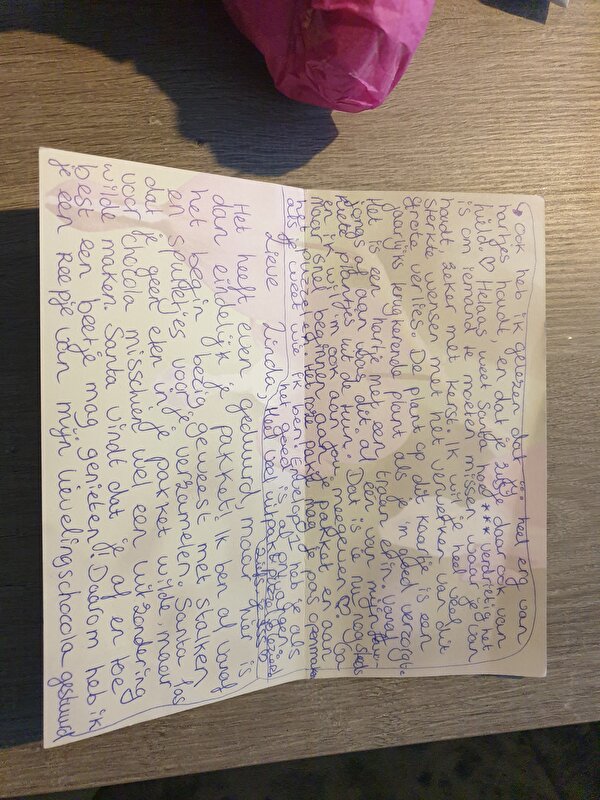 ook heb ik gelezen dat jij het erg van
hartjes houdt, en dat je daar ook van
Helaas weet Santa hoe *** verdrietig het
is om iemand te moeten missen waar je van
houdt, zeker met kerst. Ik wil je heel veel
sterkte wensen met het verwerken van dit
grote verlies. De plant op dit kaartje is een
jaarlijks terugkerende plant als je 'm goed verzorgt
Het is een hartje met een traan erin, vanaf
jongs af aan was dit al een van mijn favo-
riete plantjes uit de tuin. Dat is ie nog steeds
en ik wil 'm ook aan jou meegeven ♡! Ga
maar snel beginnen aan je pakket en aan
puzzel en Het roze pakje mag je pas openmaken
als je weet wie ik ben! heb je als
het goed is al ontvangen.
Lieve Linda,
Het heeft even geduurd, maar hier is
dan eindlijk je pakket! Ik ben al vanaf
het begin bezig geweest met stalken
en spulletjes voor je verzamelen. Santa las
dat je geen eten in je pakket wilde, maar
voor chocola misschien wel een uitzondering
wilde maken. Santa vindt dat je af en toe
best een beetje mag genieten! Daarom heb ik
je een reepje van mijn lievelingschocola gestuurd